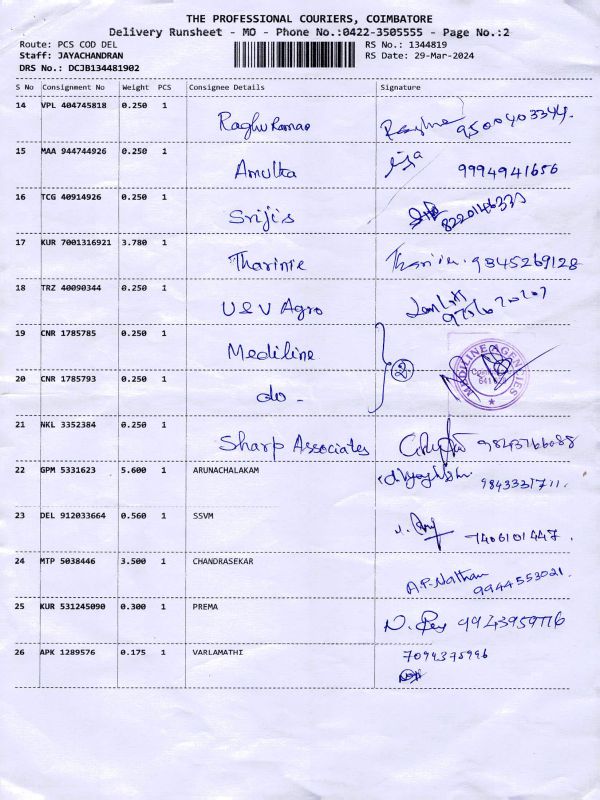 THE PROFESSIONAL COURIERS, COIMBATORE
Delivery Runsheet - MO - Phone No.:0422-3505555 - Page No.:2
Route: PCS COD DEL RS No.: 1344819
Staff: JAYACHANDRAN RS Date: 29-Mar-2024
DRS No.: DCJB134481902
S No Consignment No Weight PCS Consignee Details Signature
14 VPL 404745818 0.250 1 Raghu Raman 9500403344.
15 MAA 944744926 0.250 1 Amulta 9994941656
16 TCG 40914926 0.250 1 Srijis
17 KUR 7001316921 3.780 1 Tharinie Tharini. 9845269128
18 TRZ 40090344 0.250 1 U & V Agro
19 CNR 1785785 0.250 1 Mediline
2
MEDILINE AGENCIES
20 CNR 1785793 0.250 1 do -
21 NKL 3352384 0.250 1 Sharp Associates 9843766088
22 GPM 5331623 5.600 1 ARUNACHALAKAM 9843331711.
23 DEL 912033664 0.560 1 SSVM 7406101447.
24 MTP 5038446 3.500 1 CHANDRASEKAR A.P. Nathan
9944553021.
25 KUR 531245090 0.300 1 PREMA 9943959776
26 APK 1289576 0.175 1 VARLAMATHI 7094375996